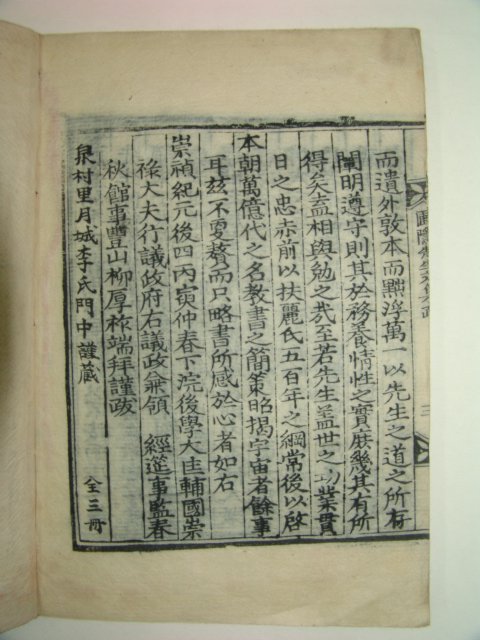 而遺外敦本而黜浮萬一以先生之道之所存
闡明遵守則其於務養情性之實庶幾其有所
得矣盍相與勉之哉至若先生盖世之功業貫
日之忠赤前以扶麗氏五百年之綱常後以啓
本朝萬億代之名教書之簡策昭揭宇宙者餘事
耳玆不復贅而只略書所感於心者如右
崇禎紀元後四丙寅仲春下浣後學大匡輔國崇
祿大夫行議政府右議政兼領 經筵事監春
秋館事豐山柳厚祚端拜謹跋
泉村里月城李氏門中謹藏
全三冊